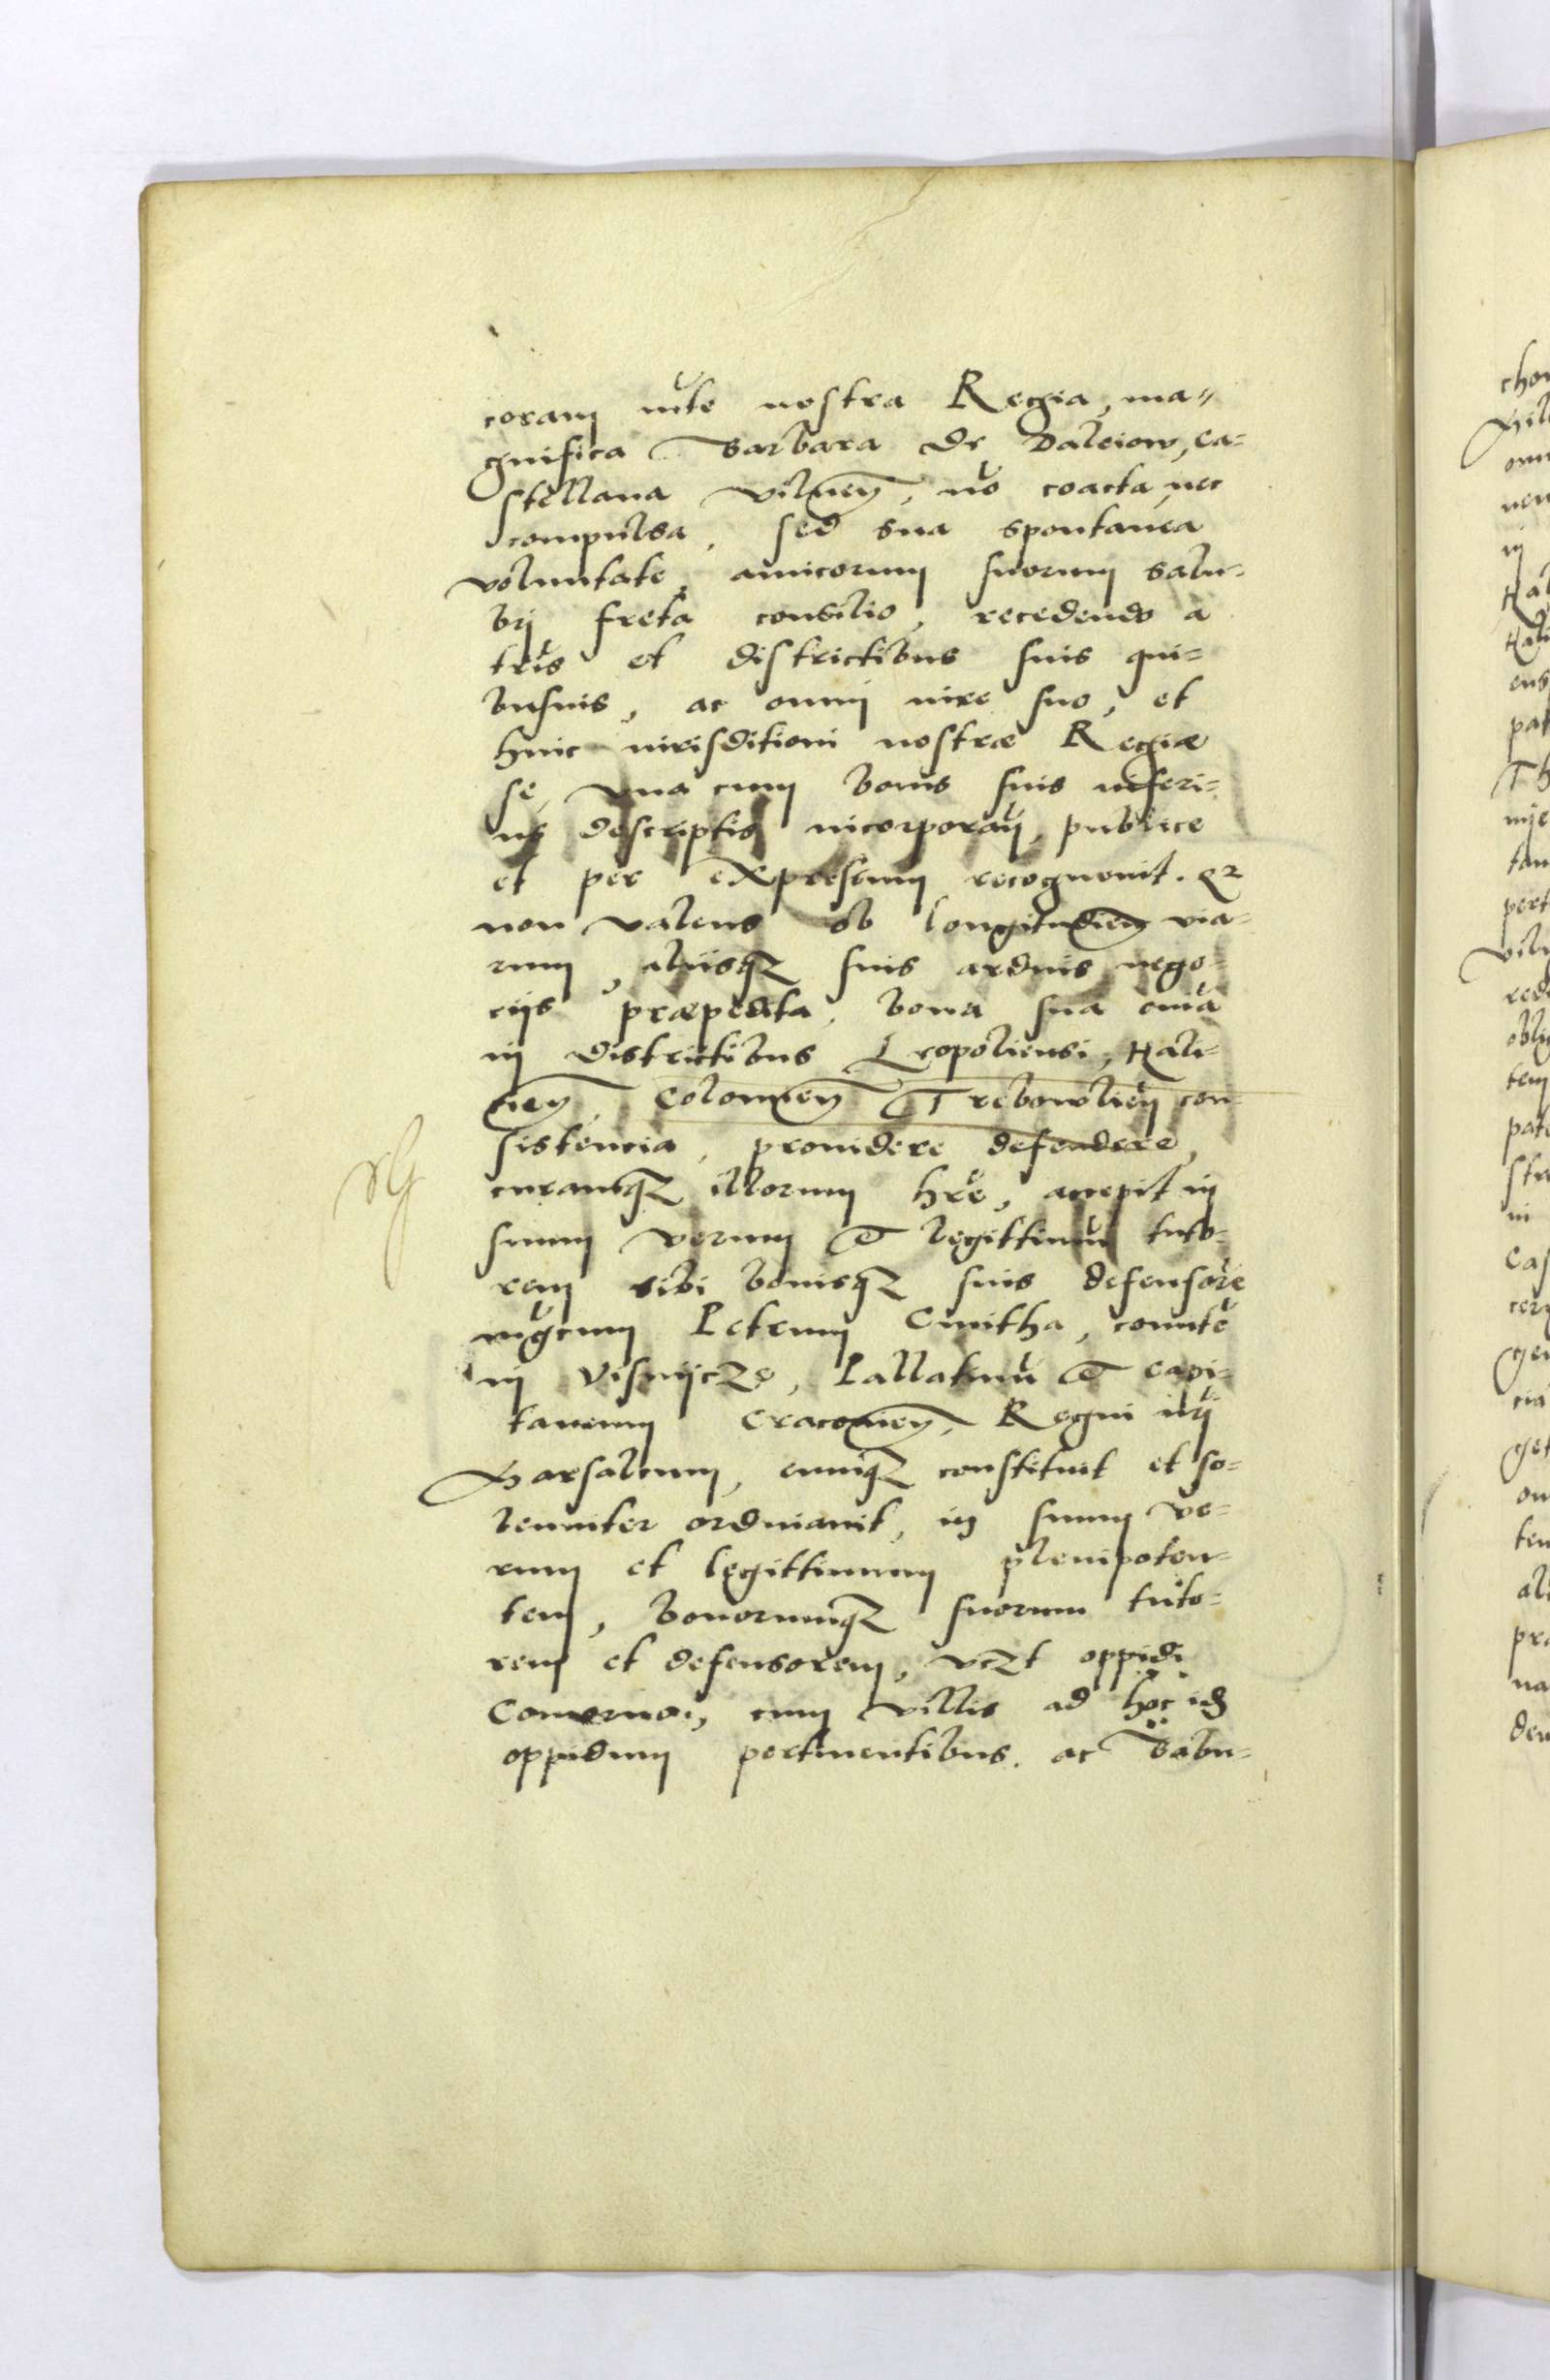 coram mte nostra Regia, ma=
gnifica Barbara de Daleiow, ca=
stellana vilnen, no coacta, nec
compulsa, sed sua spontanea
voluntate, amicorum suorum salu=
bri freta consilio, recedendo a
tris et districtibus suis qui=
busuis, ac omni iure suo, et
huic iurisditioni nostræ Regiæ
se, vna cum bonis suis inferi=
us descriptis incorporan, publice
et per expressum recognouit. Qr
non valens ob longitudiem via=
rum, aliisqz suis arduis nego=
ciis præpedita, bona sua omia
in districtibus Leopoliensi, Hali=
cien, Colomien Trebowlien con=
sistencia, prouidere defendere,
curamqz illorum hre, accepit in
suum verum et legittimu tuto=
rem sibi bonisqz suis defensore
mgcum Petrum Cmitha, comite
in Visnijcze, Pallatinu et capi=
taneum Cracouien, Regni nri
Marsalcum, eumqz constituit et so=
lenniter ordinauit, in suum ve=
rum et legittimum plenipoten=
tem, bonorumqz suorum tuto=
rem et defensorem, vczt oppidi
cum villis ad hoc id
oppidum pertinentibus, ac Babu=
chow